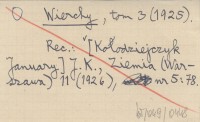 O Wierchy, tom 3 (1925).
Rec.: "[Kołodziejczyk
January] J.K., Ziemia (War-
szawa) 11 (1926), nr 5:78.